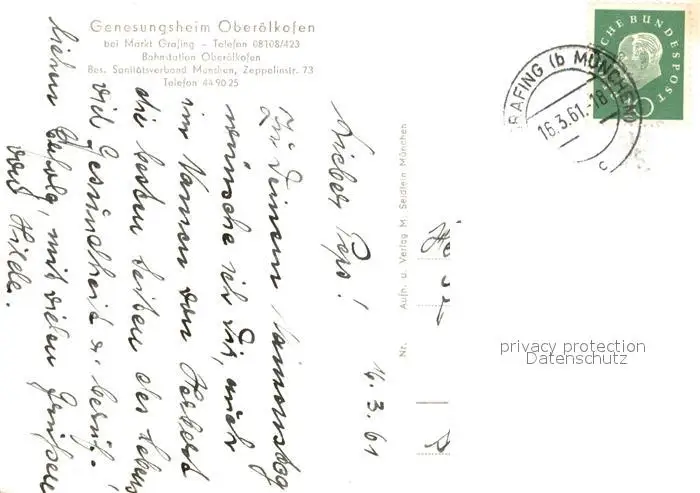 Genesungsheim Oberölkofen
bei Markt Grafing – Telefon 08108/423
Bahnstation Oberölkofen
Bes. Sanitätsverband München, Zeppelinstr. 73
Telefon 44 90 25
16.3.61
Lieber Pepo!
Zu Deinem Namenstag
wünsche ich Dir, auch
im Namen von Herbert
die besten Seiten des Lebens
viel Gesundheit u. beruf-
lichen Erfolg, mit vielen Grüßen
von Hilde.
Aufn. u. Verlag M. Seidlein München
Nr.
He
CHE BUNDESPOST
GRAFING (b MÜNCHEN)
16.3.61.-18
c
privacy protection
Datenschutz